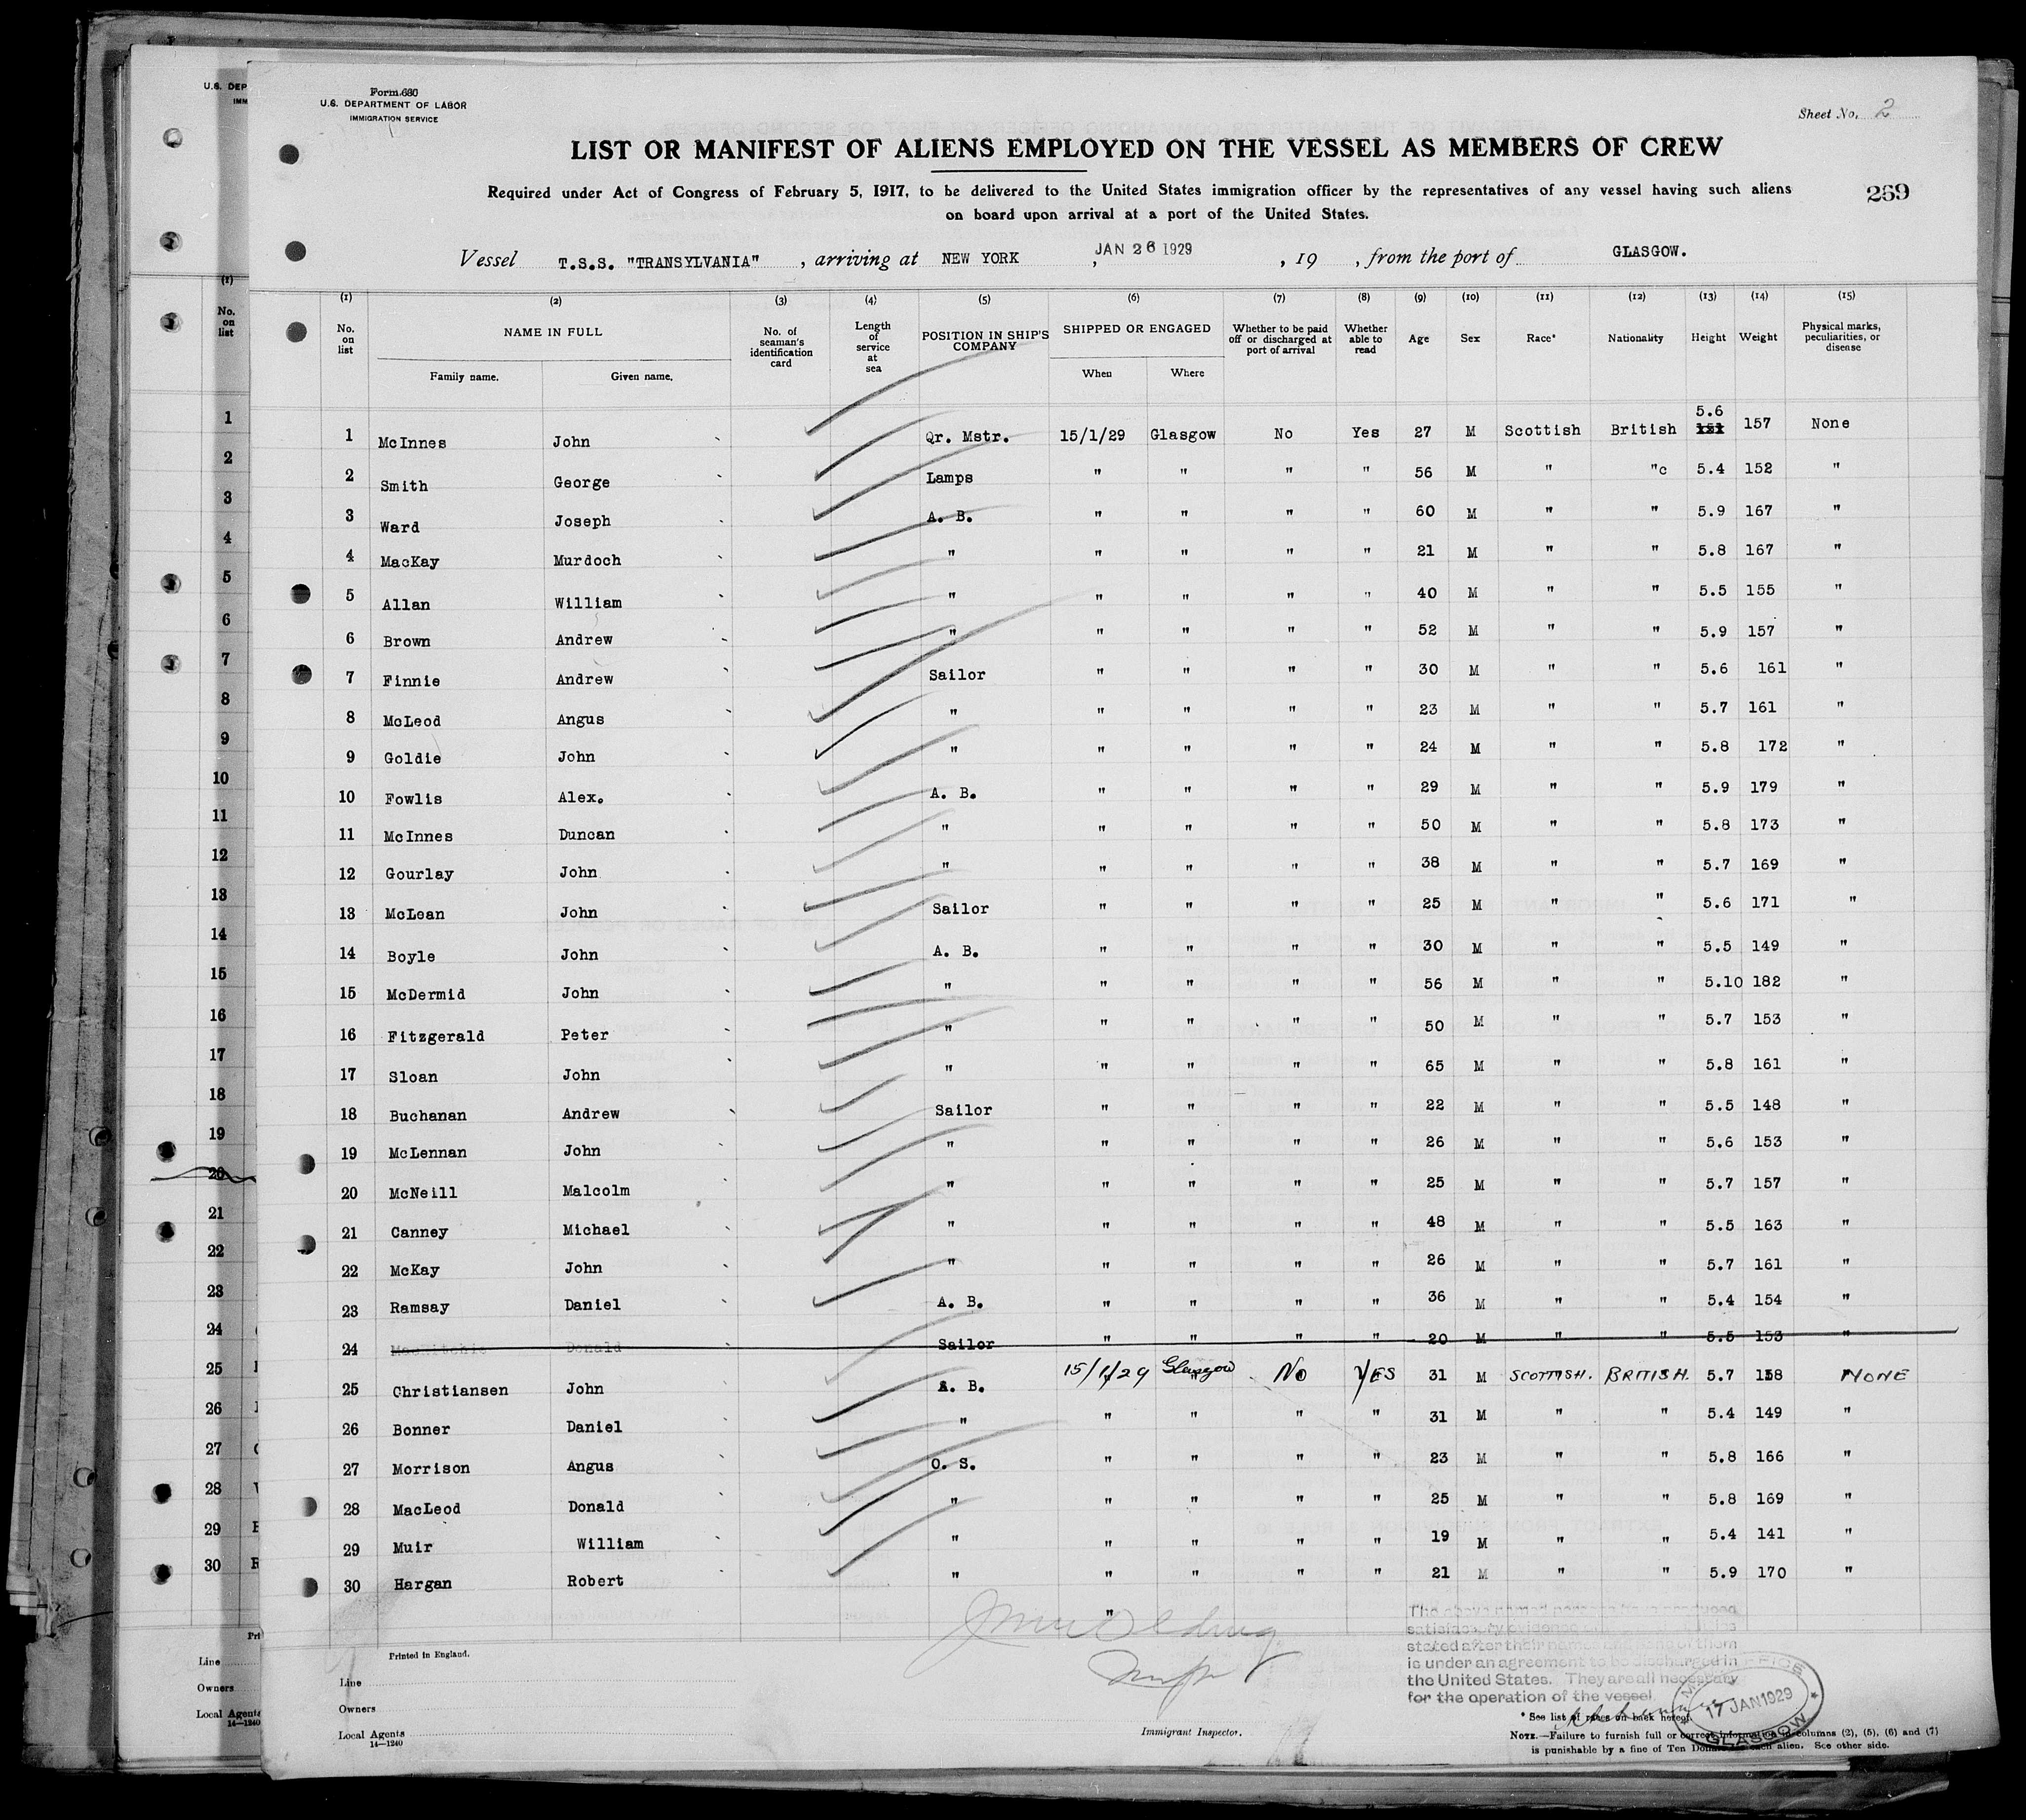 Form 680
U.S. DEPARTMENT OF LABOR
IMMIGRATION SERVICE
Sheet No. 2
LIST OR MANIFEST OF ALIENS EMPLOYED ON THE VESSEL AS MEMBERS OF CREW
Required under Act of Congress of February 5, 1917, to be delivered to the United States immigration officer by the representatives of any vessel having such aliens
on board upon arrival at a port of the United States.
269
Vessel T.S.S. "TRANSYLVANIA" , arriving at NEW YORK , JAN 26 1929 , 19 , from the port of GLASGOW.
(1) (2) (3) (4) (5) (6) (7) (8) (9) (10) (11) (12) (13) (14) (15)
No. on list NAME IN FULL Family name. Given name. No. of seaman's identification card Length of service at sea POSITION IN SHIP'S COMPANY SHIPPED OR ENGAGED When Where Whether to be paid off or discharged at port of arrival Whether able to read Age Sex Race* Nationality Height Weight Physical marks, peculiarities, or disease
1 McInnes John Qr. Mstr. 15/1/29 Glasgow No Yes 27 M Scottish British 5.6 157 None
2 Smith George Lamps " " " " 56 M " "c 5.4 152 "
3 Ward Joseph A. B. " " " " 60 M " " 5.9 167 "
4 MacKay Murdoch " " " " " 21 M " " 5.8 167 "
5 Allan William " " " " " 40 M " " 5.5 155 "
6 Brown Andrew " " " " " 52 M " " 5.9 157 "
7 Finnie Andrew Sailor " " " " 30 M " " 5.6 161 "
8 McLeod Angus " " " " " 23 M " " 5.7 161 "
9 Goldie John " " " " " 24 M " " 5.8 172 "
10 Fowlis Alex. A. B. " " " " 29 M " " 5.9 179 "
11 McInnes Duncan " " " " " 50 M " " 5.8 173 "
12 Gourlay John " " " " " 38 M " " 5.7 169 "
13 McLean John Sailor " " " " 25 M " " 5.6 171 "
14 Boyle John A. B. " " " " 30 M " " 5.5 149 "
15 McDermid John " " " " " 56 M " " 5.10 182 "
16 Fitzgerald Peter " " " " " 50 M " " 5.7 153 "
17 Sloan John " " " " " 65 M " " 5.8 161 "
18 Buchanan Andrew Sailor " " " " 22 M " " 5.5 148 "
19 McLennan John " " " " " 26 M " " 5.6 153 "
20 McNeill Malcolm " " " " " 25 M " " 5.7 157 "
21 Canney Michael " " " " " 48 M " " 5.5 163 "
22 McKay John " " " " " 26 M " " 5.7 161 "
23 Ramsay Daniel A. B. " " " " 36 M " " 5.4 154 "
24 Donald Sailor " " " " 20 M " " 5.5 153 "
25 Christiansen John A. B. 15/1/29 Glasgow No YES 31 M SCOTTISH. BRITISH. 5.7 158 NONE
26 Bonner Daniel " " " " " 31 M " " 5.4 149 "
27 Morrison Angus O. S. " " " " 23 M " " 5.8 166 "
28 MacLeod Donald " " " " " 25 M " " 5.8 169 "
29 Muir William " " " " " 19 M " " 5.4 141 "
30 Hargan Robert " " " " " 21 M " " 5.9 170 "
"
The above named persons have produced
satisfactory evidence
stated after their names and none of them
is under an agreement to be discharged in
the United States. They are all necessary
for the operation of the vessel.
Printed in England.
Line
Owners
Local Agents
14—1240
Immigrant Inspector.
17 JAN 1929
GLASGOW
* See list of races on back hereof.
NOTE.—Failure to furnish full or correct information in columns (2), (5), (6) and (7)
is punishable by a fine of Ten Dollars each alien. See other side.
U.S. DEP
IMM
(1)
No. on list
1
2
3
4
5
6
7
8
9
10
11
12
13
14
15
16
17
18
19
20
21
22
23
24
25
26
27
28
29
30
Pri
Line
Owners
Local Agents
14—1240